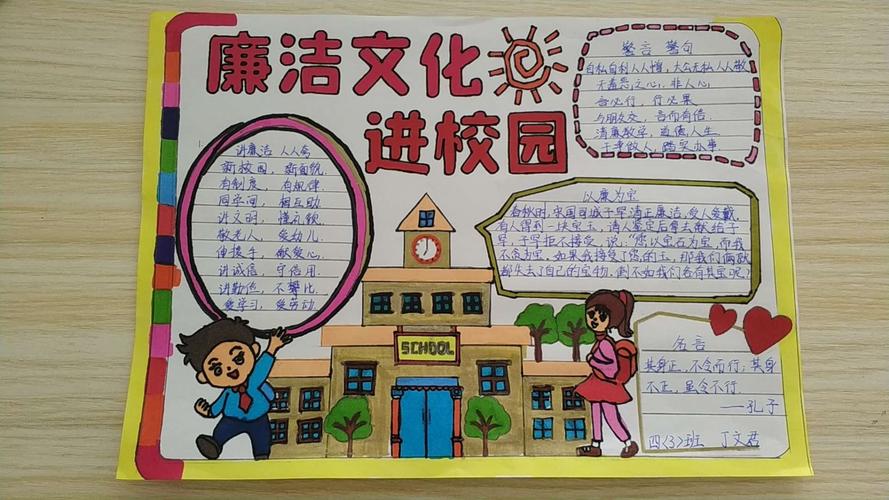 廉洁文化
进校园
警言 警句
自私自利人人憎，大公无私人人敬
无羞恶之心，非人心
言必行，行必果
与朋友交，言而有信
清廉教学，道德人生
干净做人，踏实办事
讲廉洁 人人夸
新校园，新面貌
有制度，有规律
同学间，相互助
讲文明，懂礼貌
敬老人，爱幼儿
伸援手，献爱心
讲诚信，守信用
讲勤俭，不攀比
爱学习，爱劳动
以廉为宝
春秋时，宋国司城子罕清正廉洁，受人爱戴
有人得到一块宝玉，请人鉴定后拿去献给子
罕，子罕拒不接受，说："您以宝石为宝，而我
不贪为宝。如果我接受了您的玉，那我们俩就
都失去了自己的宝物，倒不如我们各有其宝呢？
SCHOOL
名言
其身正，不令而行；其身
不正，虽令不行
——孔子
四(3)班 丁文君